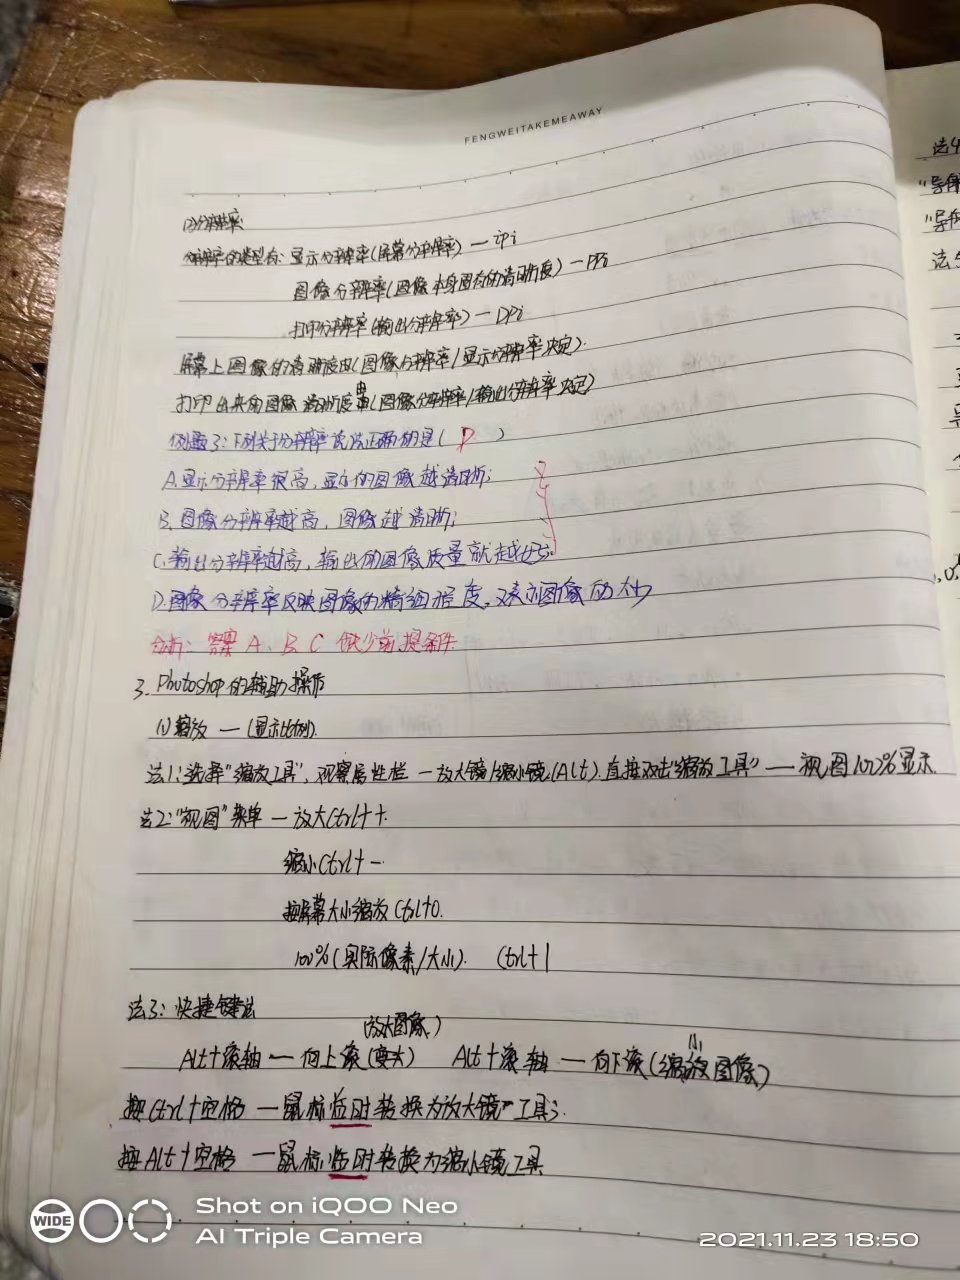 FENGWEITAKEMEAWAY
(2)分辨率
分辨率的类型有: 显示分辨率(屏幕分辨率) — iPi
图像分辨率(图像本身固有的清晰度) — PPi
打印分辨率(输出分辨率) — DPi
屏幕上图像的清晰度由(图像分辨率/显示分辨率决定).
打印出来的图像清晰度由(图像分辨率/输出分辨率决定)
例题3: 下列关于分辨率说法正确的是( D )
A.显示分辨率很高, 显示的图像越清晰;
B.图像分辨率越高, 图像越清晰;
C.输出分辨率越高, 输出的图像质量就越好;
D.图像分辨率反映图像的精细程度, 又表示图像的大小
分析: 答案 A、B、C 缺少前提条件
3. Photoshop的辅助操作
(1)缩放 — (显示比例).
法1: 选择"缩放工具", 观察属性栏 — 放大镜/缩小镜(Alt). 直接双击"缩放工具" — 视图100%显示.
法2: "视图"菜单 — 放大Ctrl++.
缩小Ctrl+-.
按屏幕大小缩放 Ctrl+0.
100%(实际像素/大小). Ctrl+1
法3: 快捷键法
(放大图像)
Alt+滚轴 — 向上滚(变大) Alt+滚轴 — 向下滚(缩小图像)
按Ctrl+空格 — 鼠标临时转换为放大镜"工具;
按Alt+空格 — 鼠标临时转换为缩小镜工具
法4
"导航
"导航
法5
WIDE
Shot on iQOO Neo
AI Triple Camera
2021.11.23 18:50